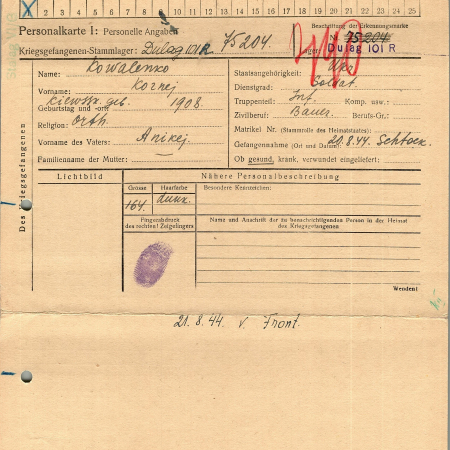 1 2 3 4 5 6 7 8 9 10 11 12 13 14 15 16 17 18 19 20 21 22 23 24 25
Personalkarte I: Personelle Angaben
Beschriftung der Erkennungsmarke
Kriegsgefangenen-Stammlager: Dulag 101 R 75204.
Nr. 75204
Lager: Dulag 101 R
Des Kriegsgefangenen
Name: Kowalenko
Vorname: Kornej
Geburtstag und -ort: Kiewsk. geb. 1908.
Religion: Orth.
Vorname des Vaters: Anikej.
Familienname der Mutter:
Staatsangehörigkeit: Ukr.
Dienstgrad: Soldat.
Truppenteil: Inf. Komp. usw.:
Zivilberuf: Bauer. Berufs-Gr.:
Matrikel Nr. (Stammrolle des Heimatstaates):
Gefangennahme (Ort und Datum): 20.8.44.
Ob gesund, krank, verwundet eingeliefert:
Lichtbild
Nähere Personalbeschreibung
Grösse
Haarfarbe
Besondere Kennzeichen:
164.
Fingerabdruck
des rechten! Zeigefingers
Name und Anschrift der zu benachrichtigenden Person in der Heimat
des Kriegsgefangenen
Wenden!
21.8.44 v. Front.